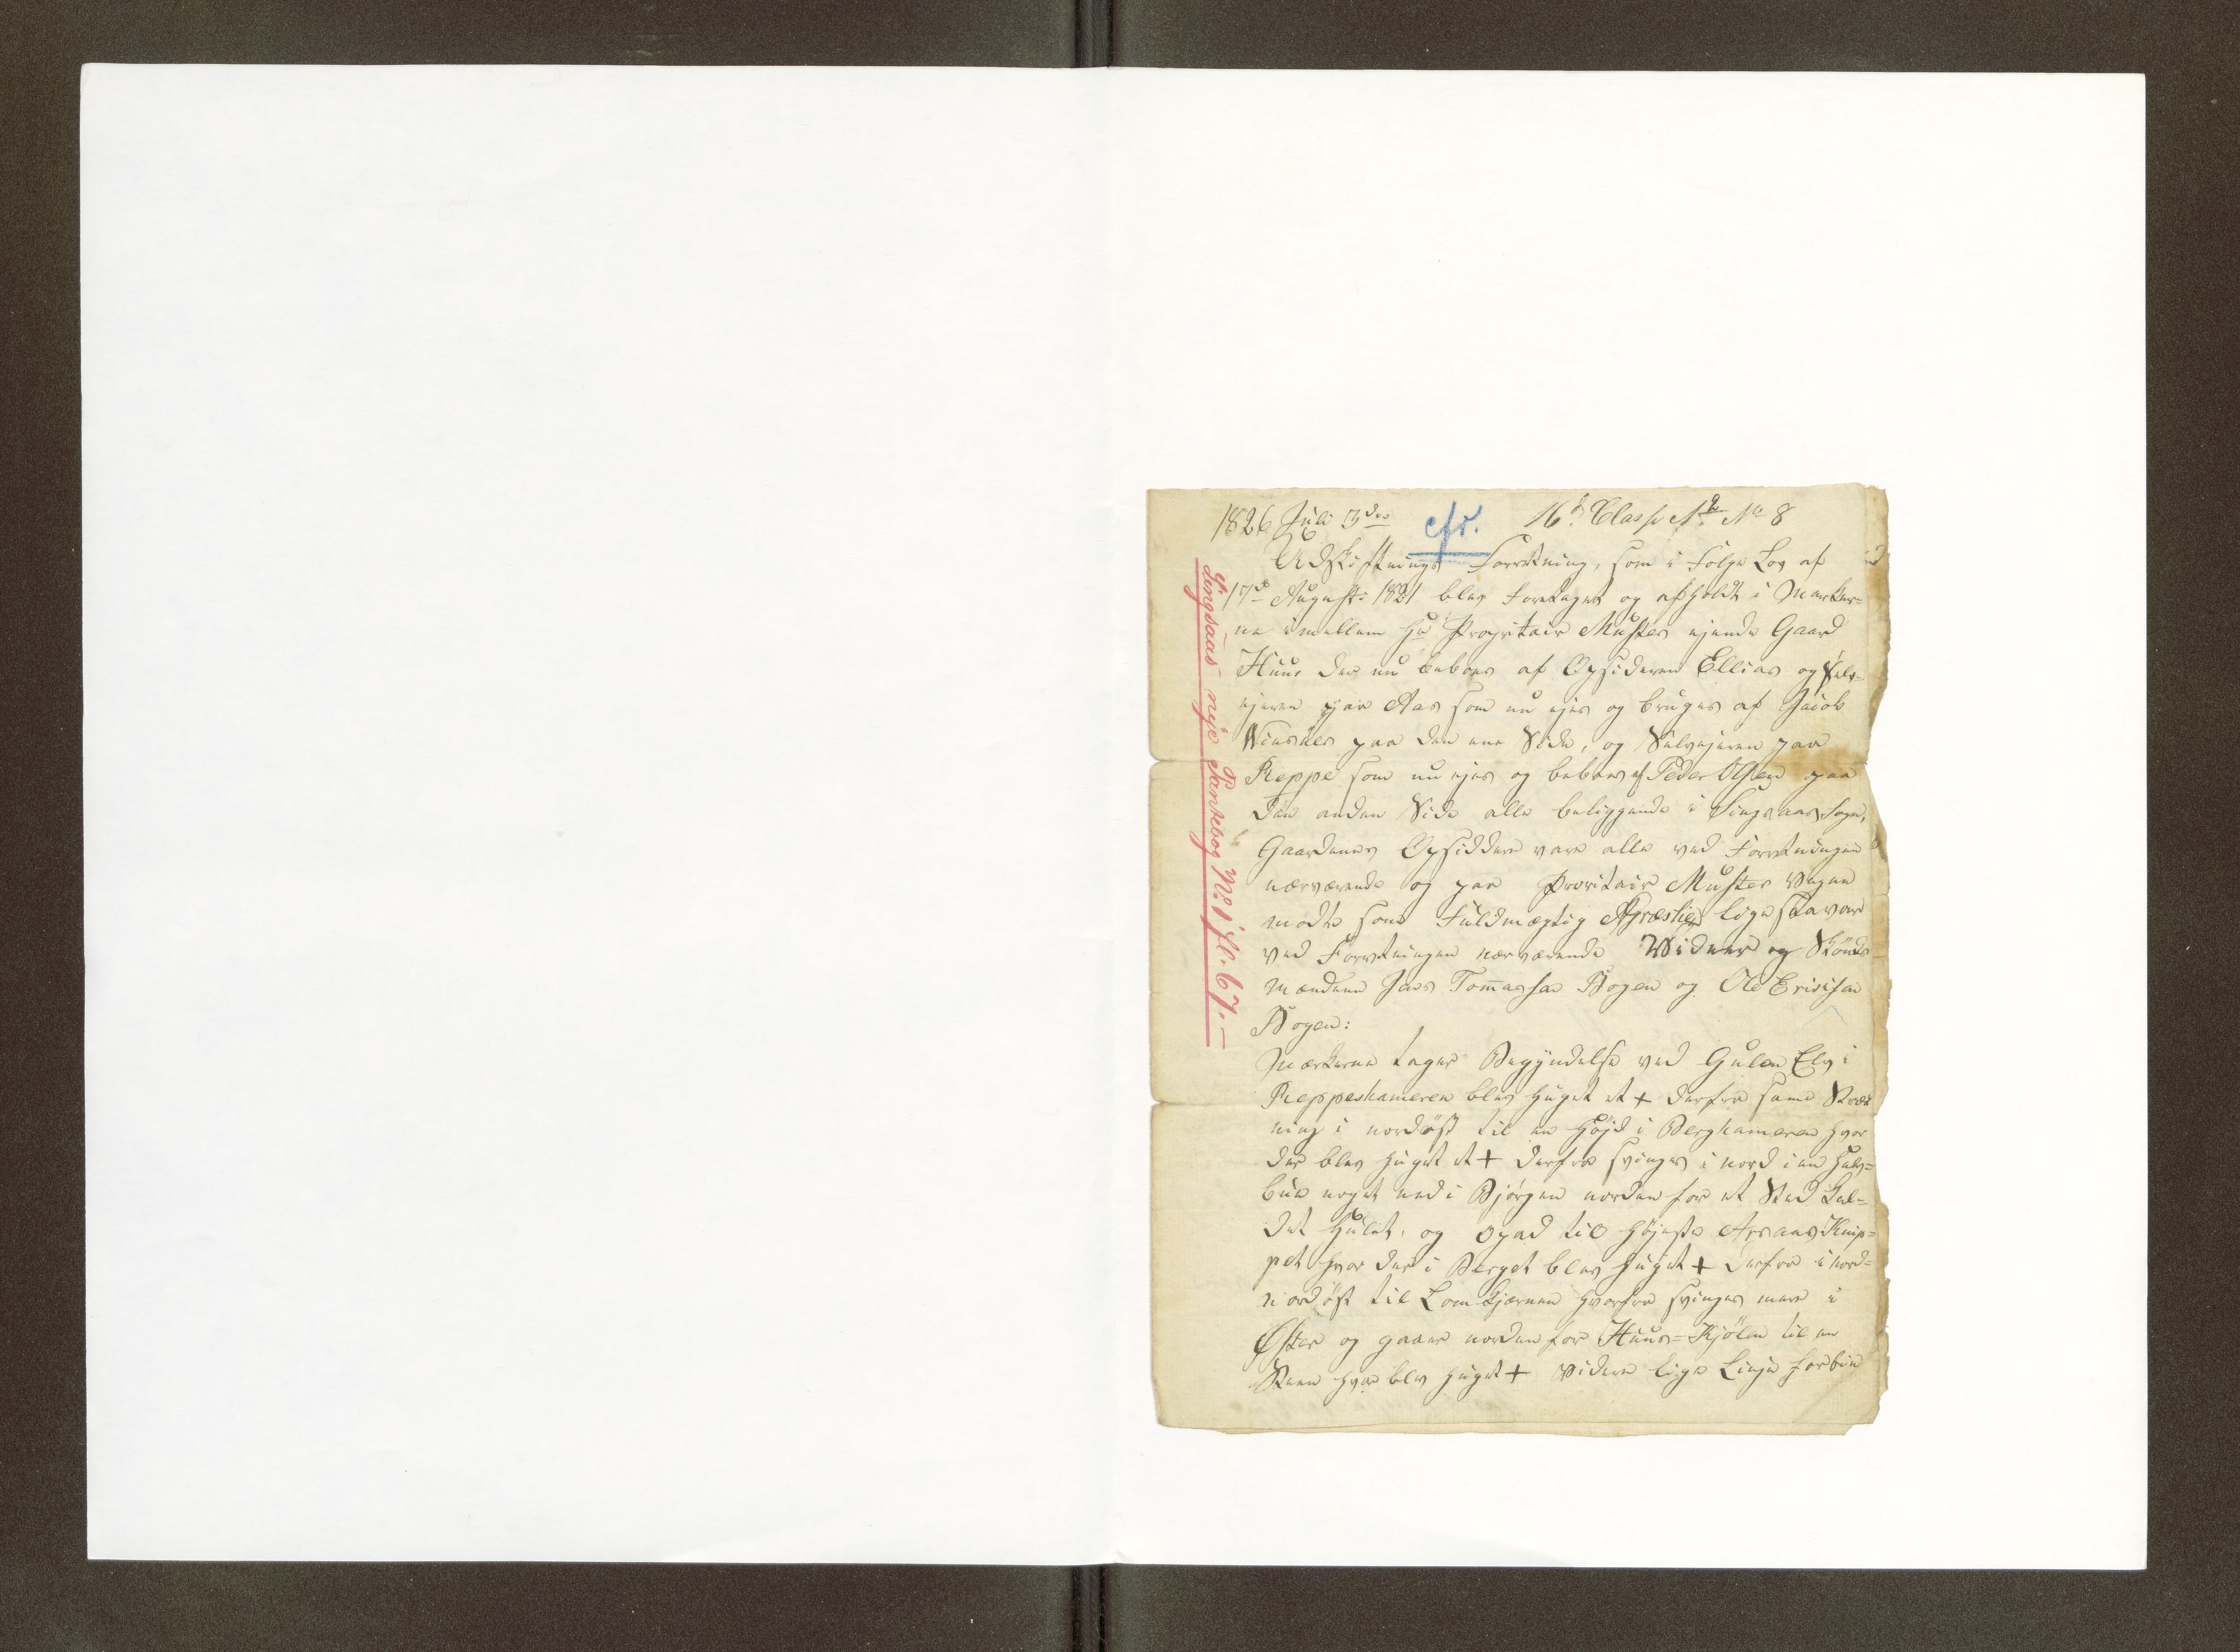 1826 Juli 3die cfr. 16d. Classe No 8
Udskiftnings Forretning, som i Følge Lov af
17de August: 1821 blev foretaget og afholdt i Marker=
ne imellem Hr Propritair Müsters ejende Gaard
Huus der nu beboes af Opsideren Ellias og Selv=
ejeren paa Aas som nu ejes og bruges af Jacob
Winsnes paa den ene Side, og Selvejeren paa
Reppe som nu ejes og beboes af Peder Olsen paa
den anden Side alle beliggende i Singsaas Sogn,
Gaardenes Opsiddere vare alle ved Forretningen
nærværende og paa Proritair Müsters Vegne
mødte som Fuldmægtig ligesaa var
ved Forretningen nærværende Widner og Skjøns
Mændene Jens Tom̅assen Bogen og Ole Ericksen
Bogen:
Mærkerne tager Begyndelse ved Gulen Elv i
Reppeshameren blev hugget et + derfra same Stræk
ning i nordøst til en Højd i Berghameren hvor
der blev hugget et + derfra svinges i nord i en Halv=
bue noget ned i Bjørgen norden for et Sted Kal=
det Hulet, og opad til højeste Aasaas Knip=
pet hvor der i Berget blev hugget + derfra i nord=
nordøst til Lomtjærnen hvorfra svinges mere i
Øster og gaaer norden for Huus=Kjølen til en
Steen hvor blev hugget + Videre lige Linje forbie
Singsaas nye Pantebog No 1 fl. 67.—